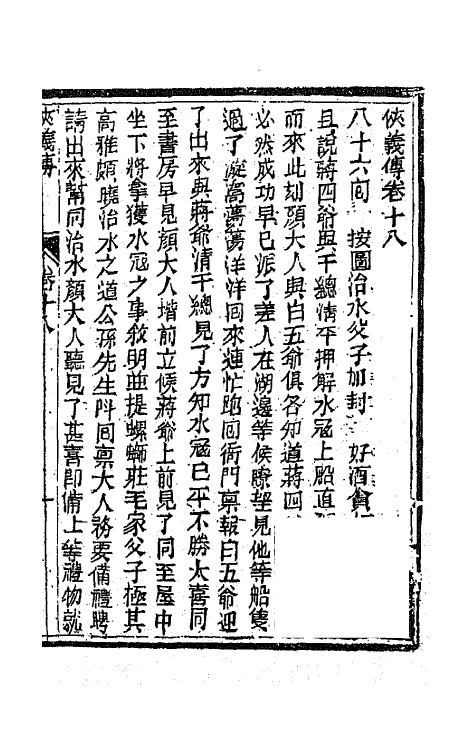 俠義傳卷十八
八十六囘 按圖治水父子加封 好酒貪
且說蔣四爺與千總清平押解水冦上船直
而來此刻顏大人與白五爺俱各知道蔣四
必然成功早已派了差人在湖邊等候瞭望見他等船隻
過了漩窩蕩蕩洋洋回來連忙跑囘衙門禀報白五爺迎
了出來與蔣爺清千總見了方知水冦已平不勝大喜同
至書房早見顏大人堦前立候蔣爺上前見了同至屋中
坐下將拿獲水冦之事敘明並提螺螄莊毛家父子極其
高雅頗曉治水之道公孫先生叫囘禀大人務要備禮聘
請出來幫同治水顏大人聽見了甚喜卽備上等禮物就
俠義傳 卷十八